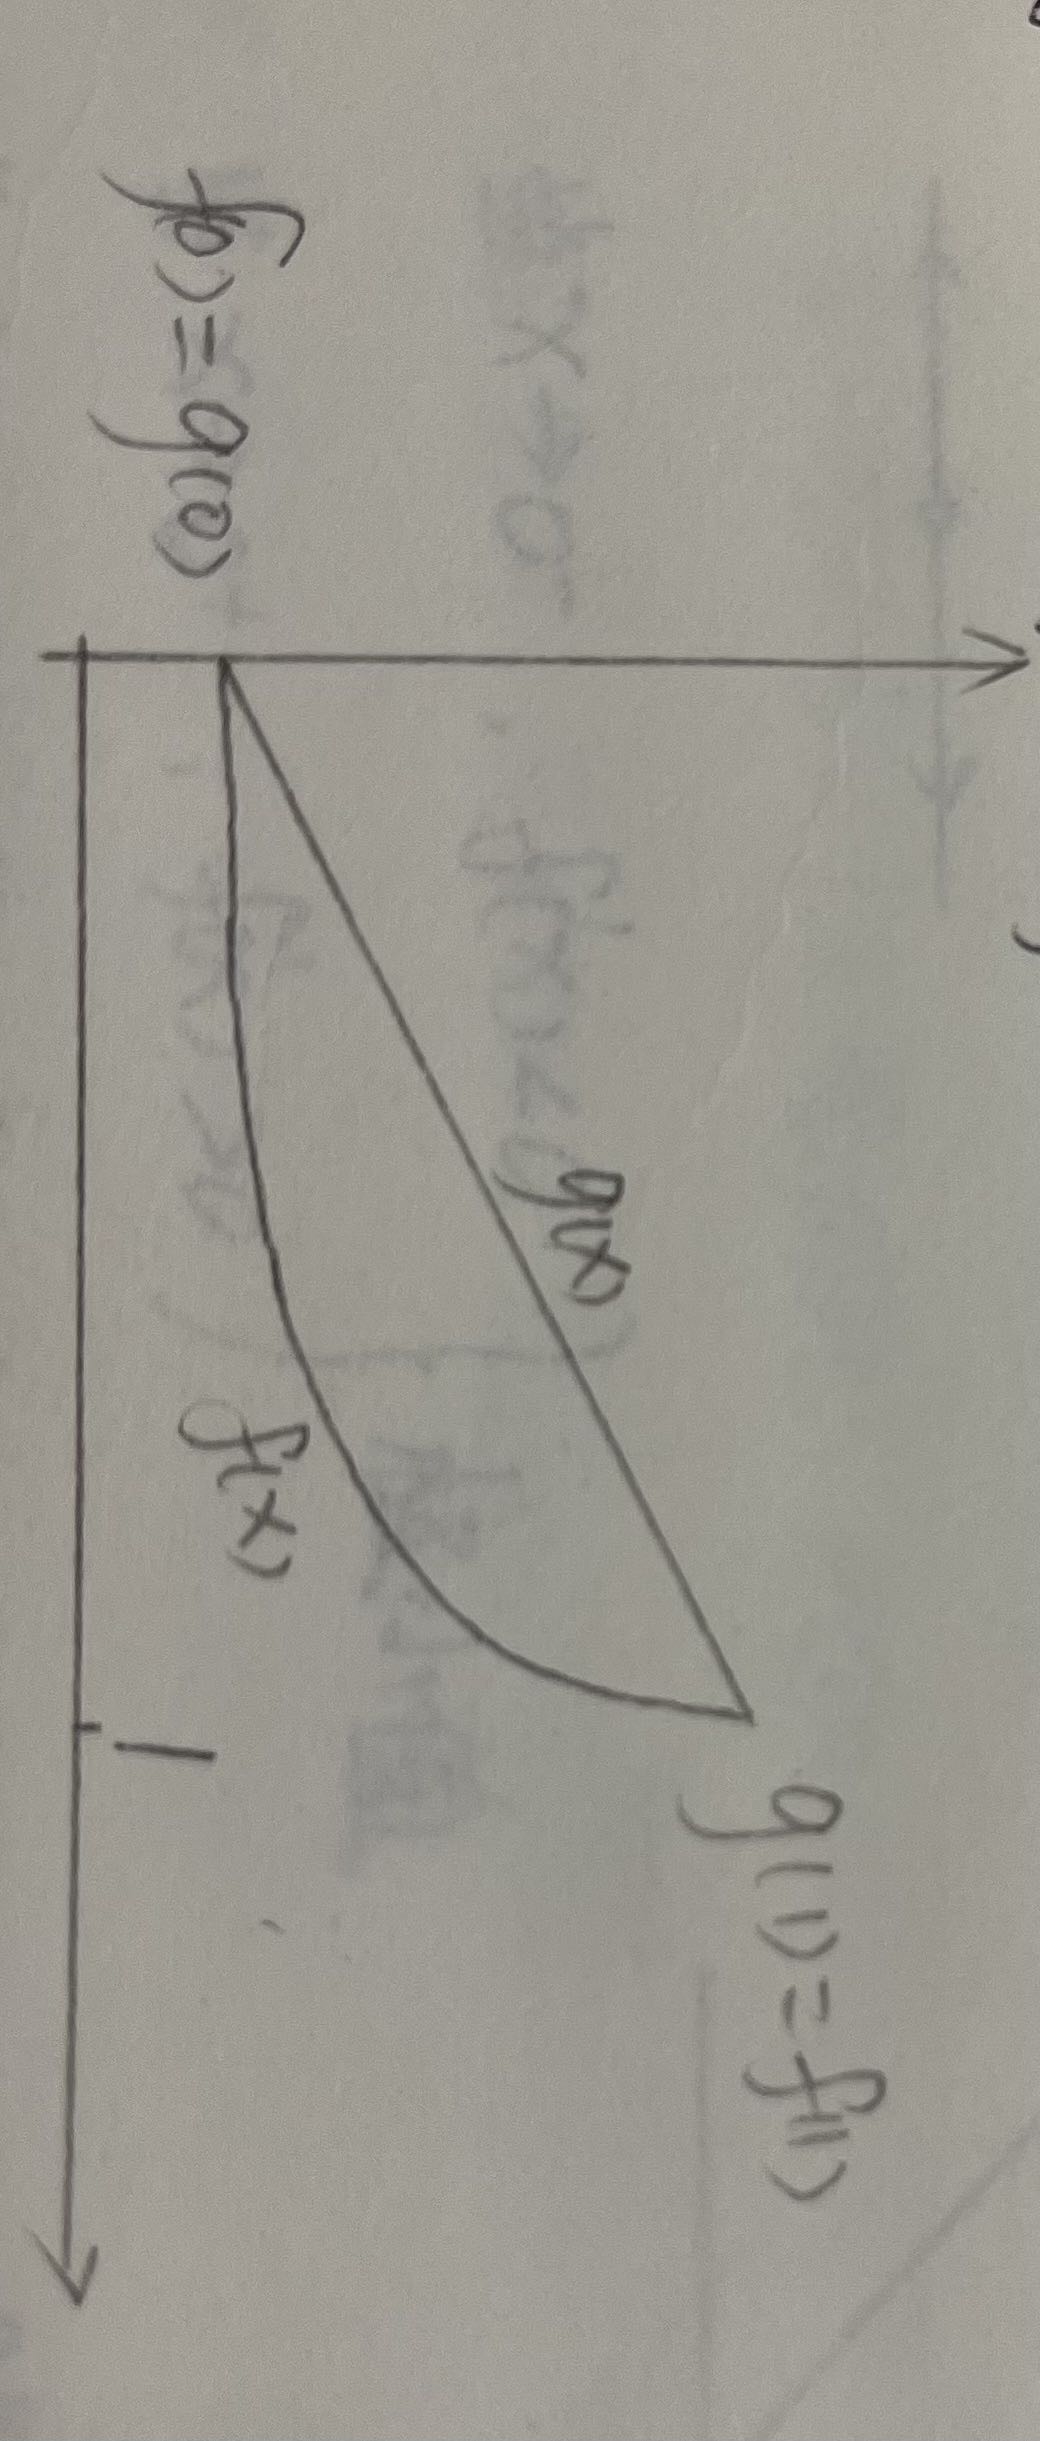 g(1)=f(1)
g(x)
f(x)
f(0)=g(0)
1